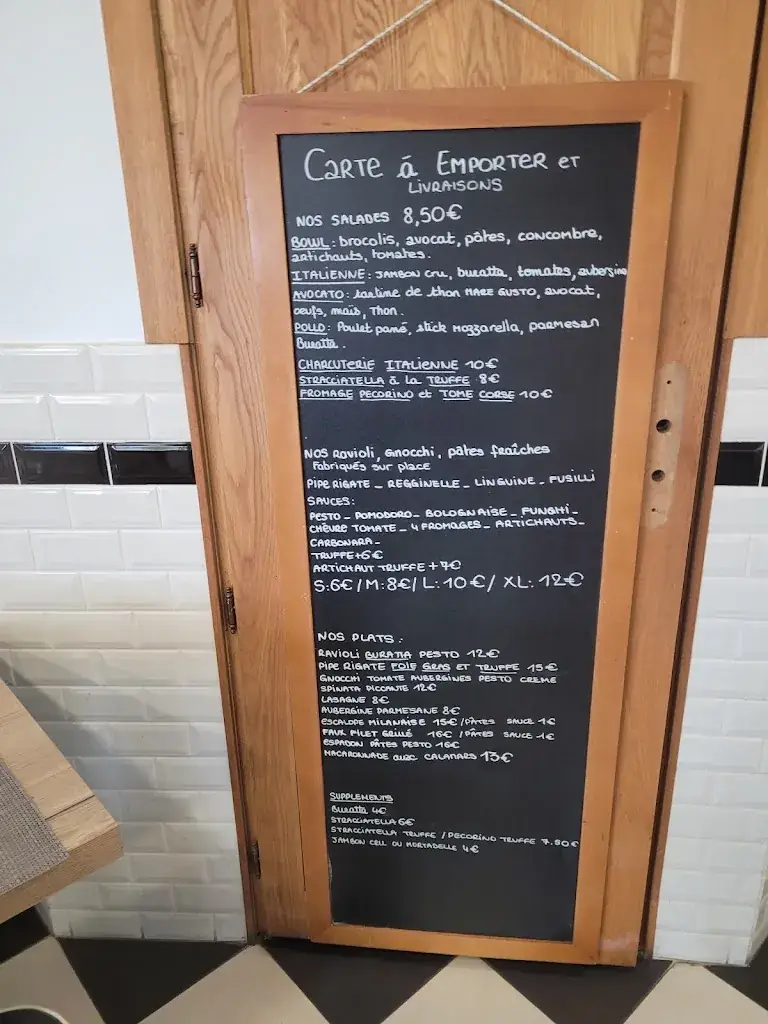 CARTE à EMPORTER ET
LIVRAISONS
NOS SALADES 8,50€
BOWL : brocolis, avocat, pâtes, concombre,
artichauts, tomates.
ITALIENNE : JAMBON cru, buratta, tomates, aubergine
AVOCATO : tartine de thon MARE GUSTO, avocat,
oeufs, maïs, Thon.
POLLO : Poulet pané, stick Mozzarella, parmesan
Buratta.
CHARCUTERIE ITALIENNE 10€
STRACCIATELLA à la TRUFFE 8€
FROMAGE PECORINO et TOME CORSE 10€
NOS Ravioli, Gnocchi, pâtes fraîches
Fabriqués sur place
PIPE RIGATE _ REGGINELLE _ LINGUINE _ FUSILLI
SAUCES :
PESTO _ POMODORO _ BOLOGNAISE _ FUNGHI _
CHÈVRE TOMATE _ 4 FROMAGES _ ARTICHAUTS _
CARBONARA _
TRUFFE +6€
ARTICHAUT TRUFFE +7€
S:6€ / M:8€ / L:10€ / XL: 12€
NOS PLATS :
RAVIOLI BURATTA PESTO 12€
PIPE RIGATE FOIE GRAS ET TRUFFE 15€
GNOCCHI TOMATE AUBERGINES PESTO CREME
SPINATA PICCANTE 12€
LASAGNE 8€
AUBERGINE PARMESANE 8€
ESCALOPE MILANAISE 15€ / PÂTES SAUCE 1€
FAUX FILET GRILLÉ 16€ / PÂTES SAUCE 1€
ESPADON PÂTES PESTO 16€
MACARONNADE avec CALAMARS 13€
SUPPLEMENTS
Buratta 4€
STRACCIATELLA 6€
STRACCIATELLA TRUFFE / PECORINO TRUFFE 7.80€
JAMBON CRU OU MORTADELLE 4€